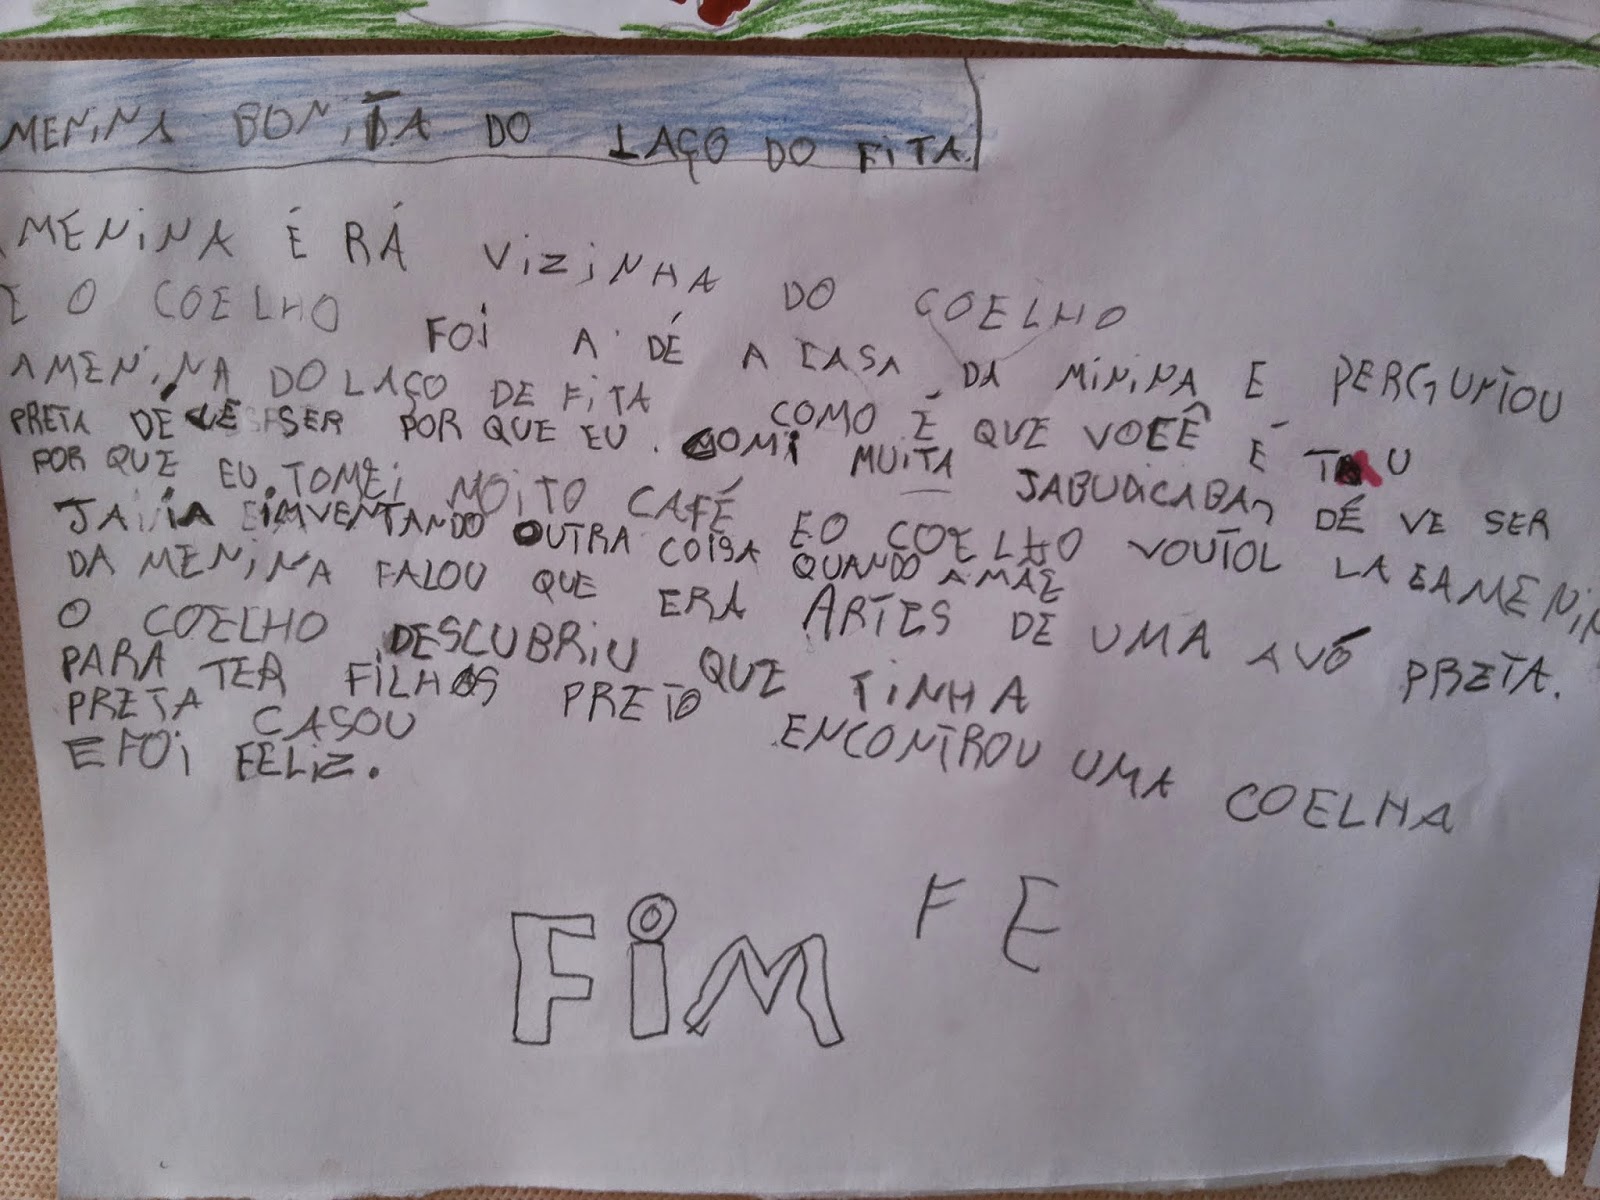 MENINA BONITA DO LAÇO DO FITA.
A MENINA É RÁ VIZINHA DO COELHO
E O COELHO FOI A DÉ A CASA DA MININA E PERGUNTOU
A MENINA DO LAÇO DE FITA COMO É QUE VOCÊ É TÃU
PRETA DÉ VE SER POR QUE EU. COMI MUITA JABUDICABA, DÉ VE SER
POR QUE EU TOMEI MOITO CAFÉ E O COELHO VOUTOL LA E A MENIN
JA IA EIMVENTANDO OUTRA COISA QUANDO A MÃE
DA MENINA FALOU QUE ERA ARTES DE UMA AVÓ PRETA.
O COELHO DESCUBRIU QUE TINHA
PARA TER FILHOS PRETO ENCONTROU UMA COELHA
PRETA CASOU
E FOI FELIZ.
FIM
FE